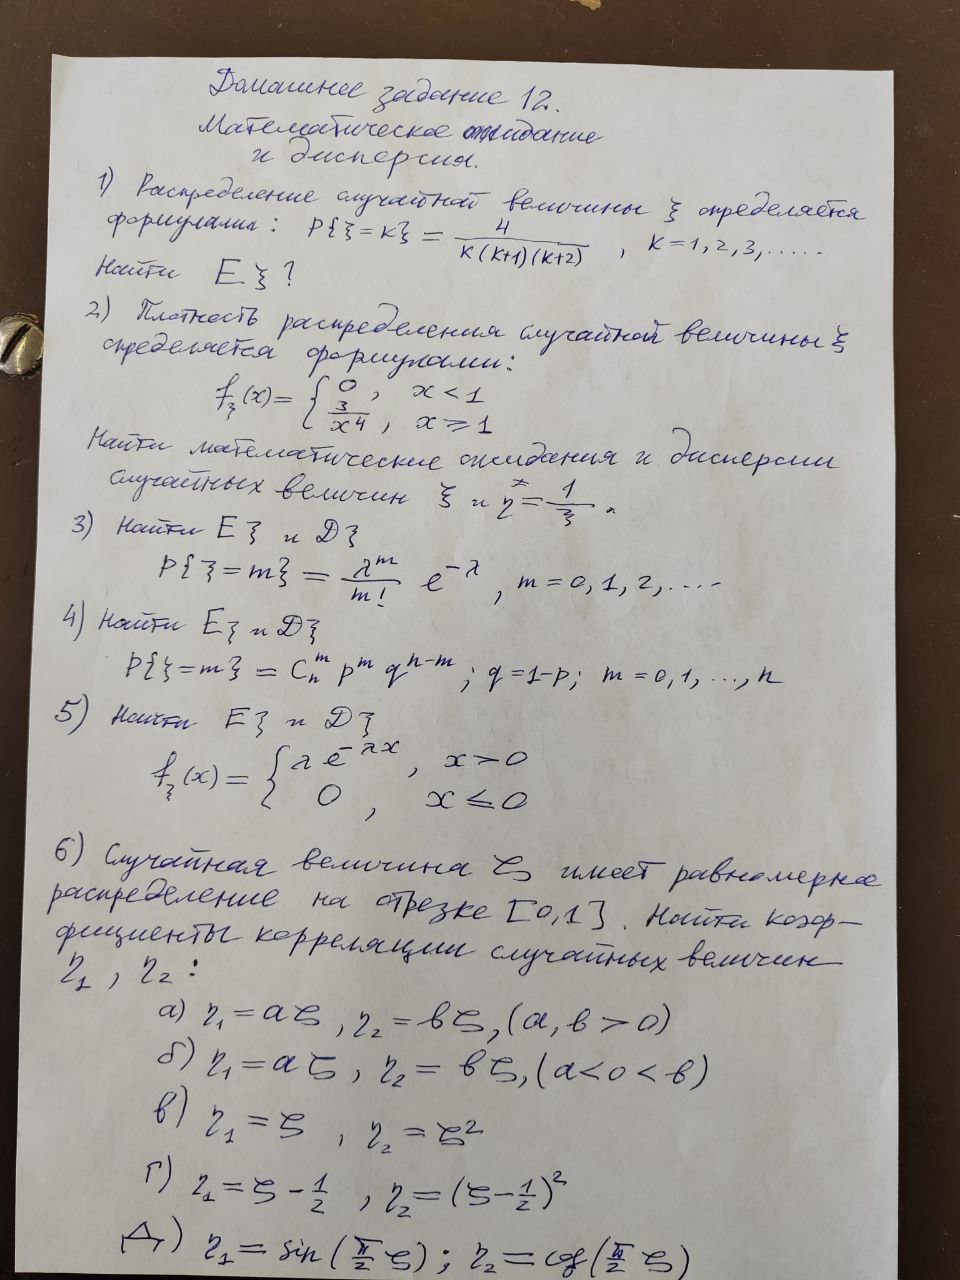 Домашнее задание 12.
Математическое ожидание
и дисперсия.
1) Распределение случайной величины ξ определяется
формулами: P{ξ=k} = 4/(k(k+1)(k+2)), k=1,2,3,.....
Найти Eξ?
2) Плотность распределения случайной величины ξ
определяется формулами:
f_ξ(x) = { 0, x < 1
3/x⁴, x ⩾ 1
Найти математические ожидания и дисперсии
случайных величин ξ и η = 1/ξ.
3) Найти Eξ и Dξ
P{ξ=m} = λ^m/m! e^{-λ}, m=0,1,2,....
4) Найти Eξ и Dξ
P{ξ=m} = C_n^m p^m q^{n-m}; q=1-p; m=0,1,...,n
5) Найти Eξ и Dξ
f_ξ(x) = { λe^{-λx}, x>0
0, x ≤ 0
6) Случайная величина ζ имеет равномерное
распределение на отрезке [0,1]. Найти коэф-
фициенты корреляции случайных величин
η₁, η₂:
а) η₁=aζ, η₂=bζ, (a,b>0)
б) η₁=aζ, η₂=bζ, (a<0<b)
в) η₁=ζ, η₂=ζ²
г) η₁=ζ-1/2, η₂=(ζ-1/2)²
Д) η₁=sin(π/2 ζ); η₂=cos(π/2 ζ)